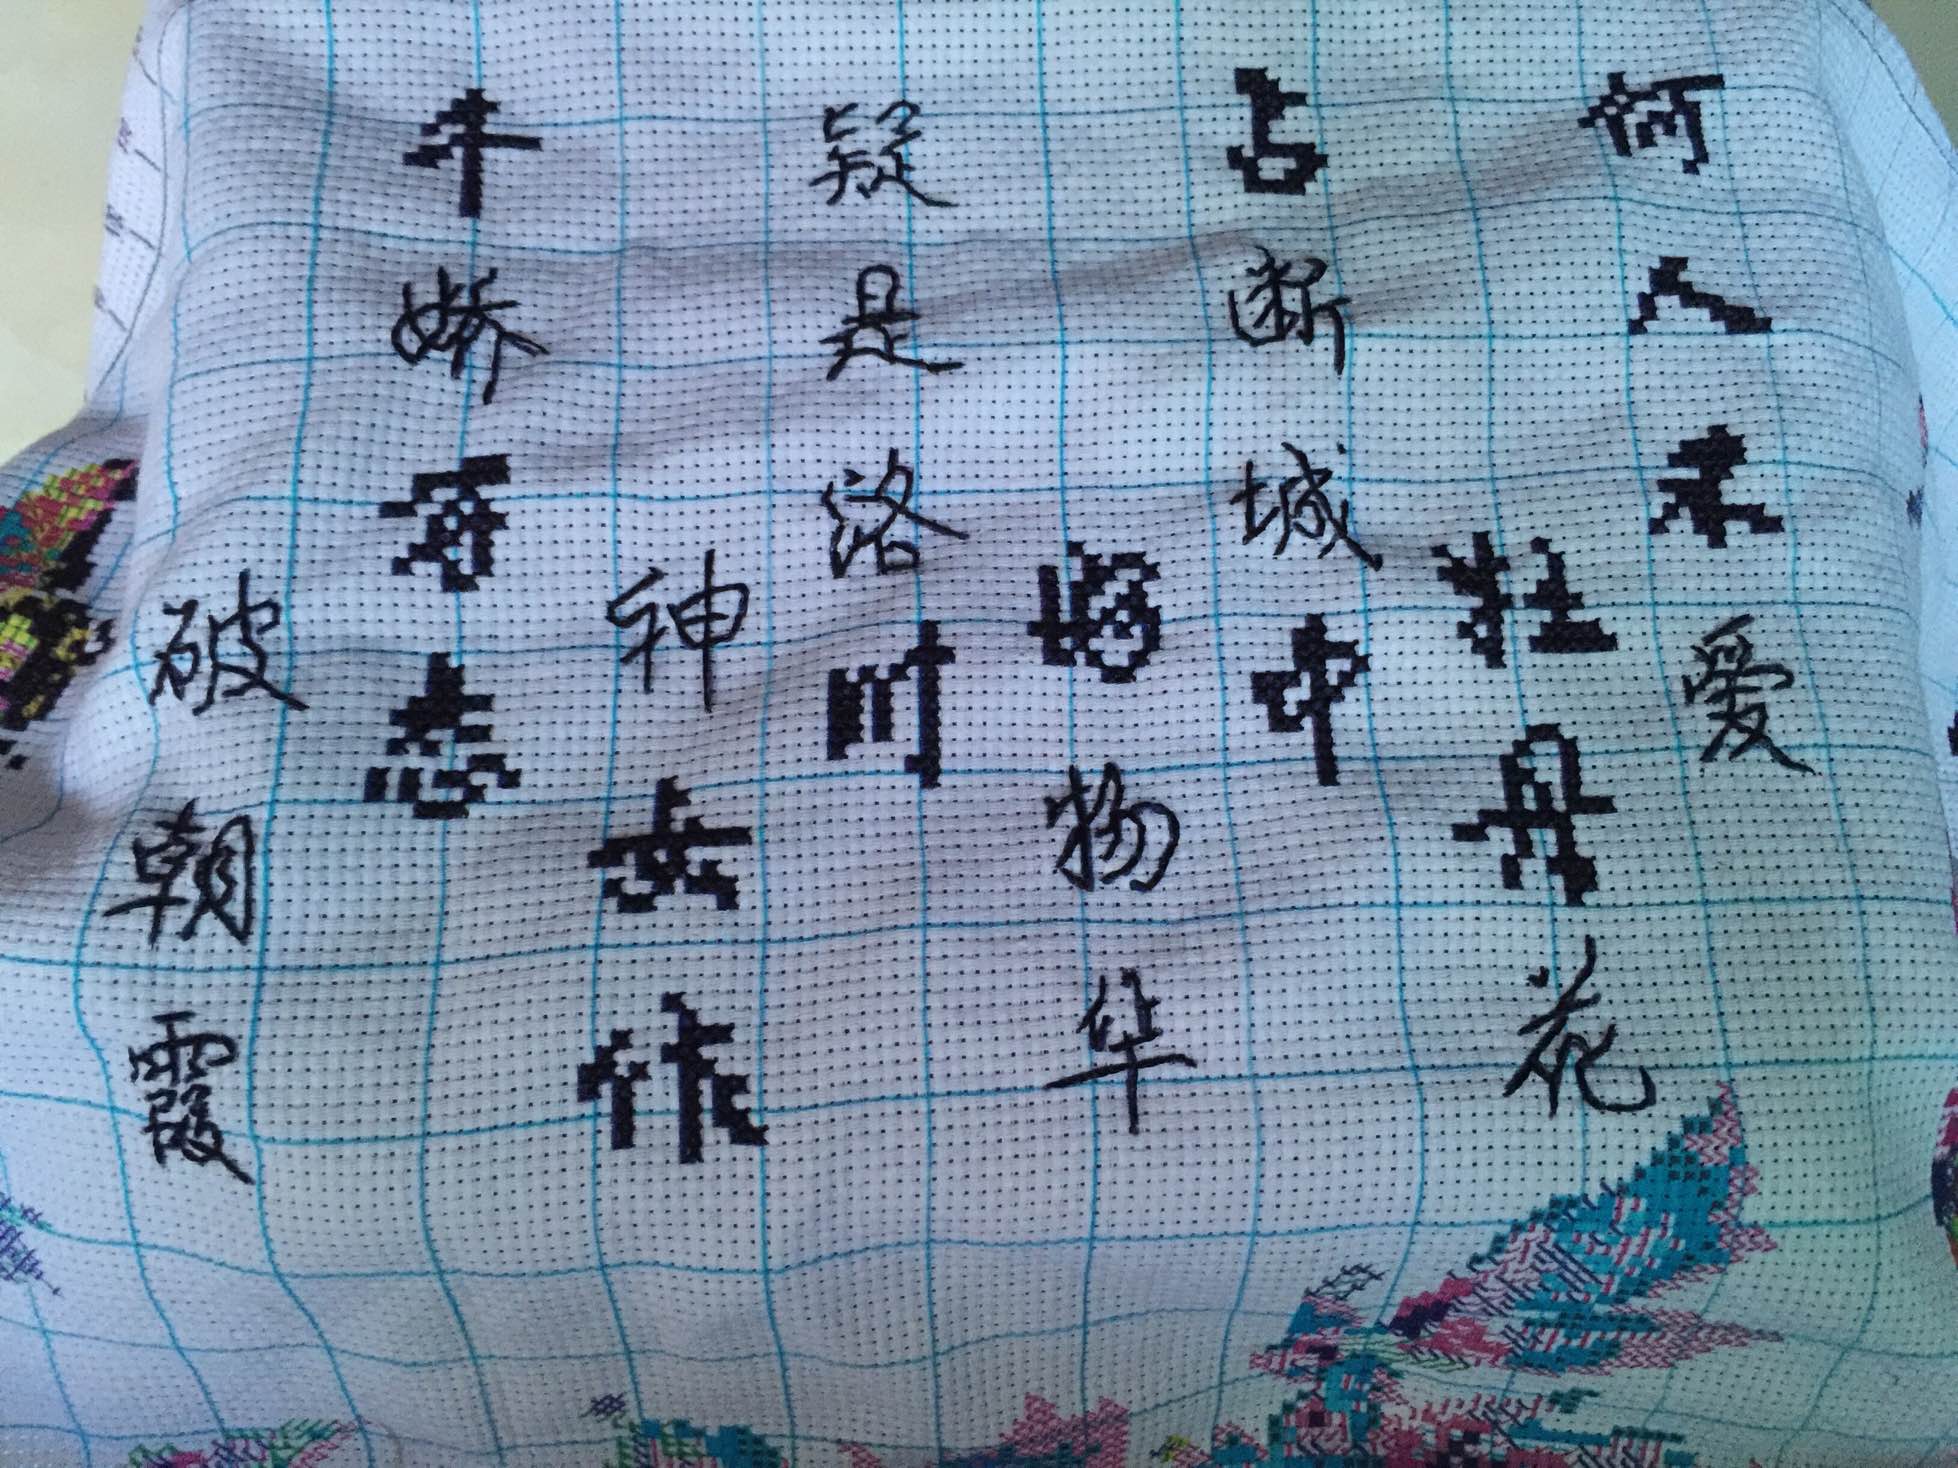 何人不爱
牡丹花
占断城中
好物华
疑是洛川
神女作
千娇万态
破朝霞